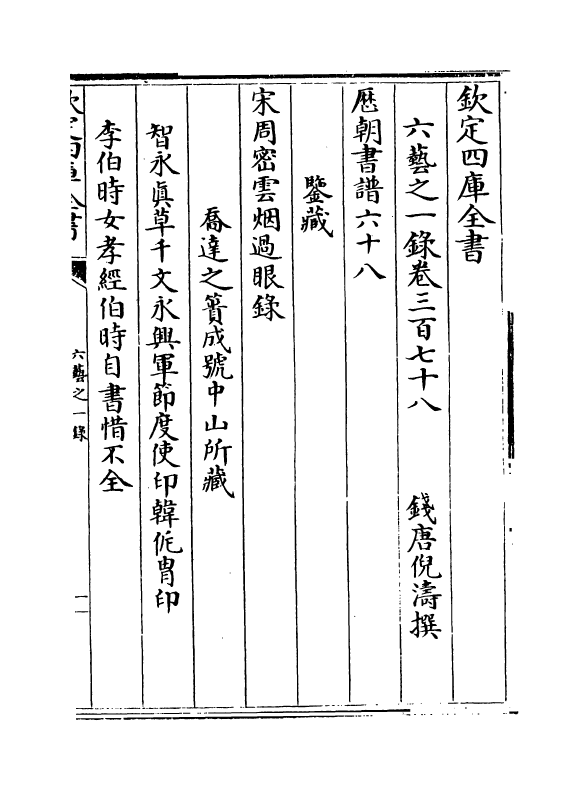 欽定四庫全書
六藝之一錄卷三百七十八　　錢唐倪濤撰
歷朝書譜六十八
鑒藏
宋周密雲烟過眼錄
喬達之簣成號中山所藏
智永真草千文永興軍節度使印韓侂胄印
李伯時女孝經伯時自書惜不全
欽定四庫全書
六藝之一錄
一